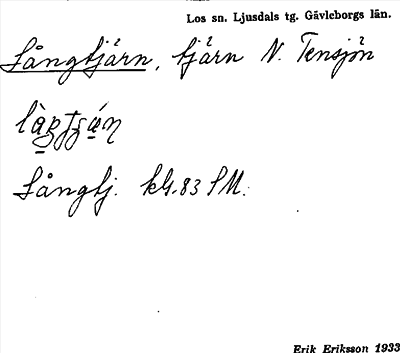 Los sn. Ljusdals tg. Gävleborgs län.
Långtjärn, tjärn N. Tensjön
Långtj. kG.83 SM.
Erik Eriksson 1933